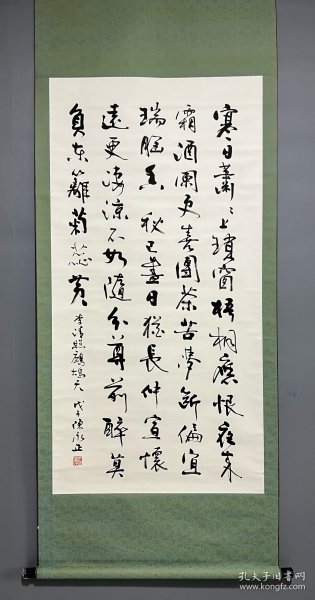 寒日蕭〻上瑣窗梧桐應恨夜来
霜酒闌更喜團茶苦夢斷偏宜
瑞脑香秋已盡日猶長仲宣懷
遠更凄凉不如隨分尊前醉莫
負东籬菊蕊黄
李清照鷓鴣天 戊子陳正
孔夫子旧书网
www.kongfz.com